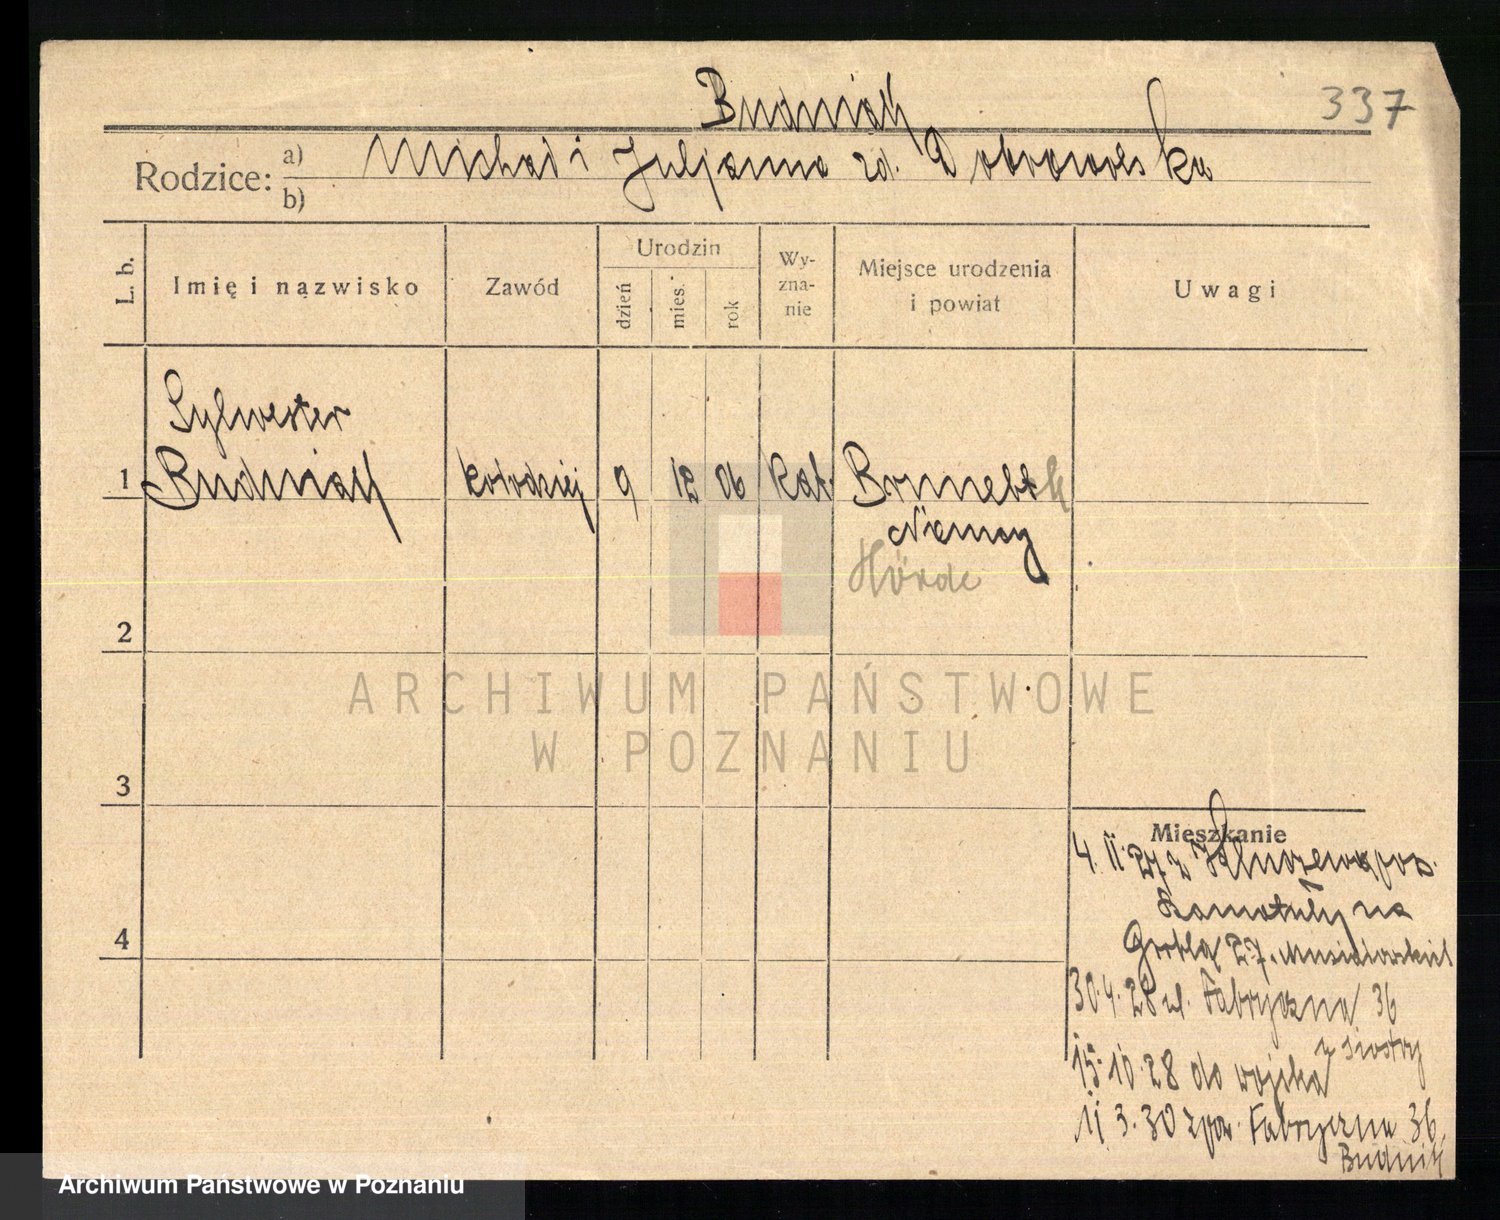 Budniak
337
Rodzice: a) Michał i Juljanna zd. Dobrowolska
b)
L. b.
Imię i nazwisko
Zawód
Urodzin
dzień
mies.
rok
Wy-
zna-
nie
Miejsce urodzenia
i powiat
Uwagi
Sylwester
1 Budniak kołodziej 9 12 06 kat.
Niemcy
Hörde
2
3
4
ARCHIWUM PAŃSTWOWE
W POZNANIU
Mieszkanie
4. II. 27 z pow.
Szamotuły na
Grobla 27.
30.4.28 ul. Fabryczna 36
u siostry
15.10.28 do wojska
11 3.30 zpow. Fabryczna 36
Budnik
Archiwum Państwowe w Poznaniu